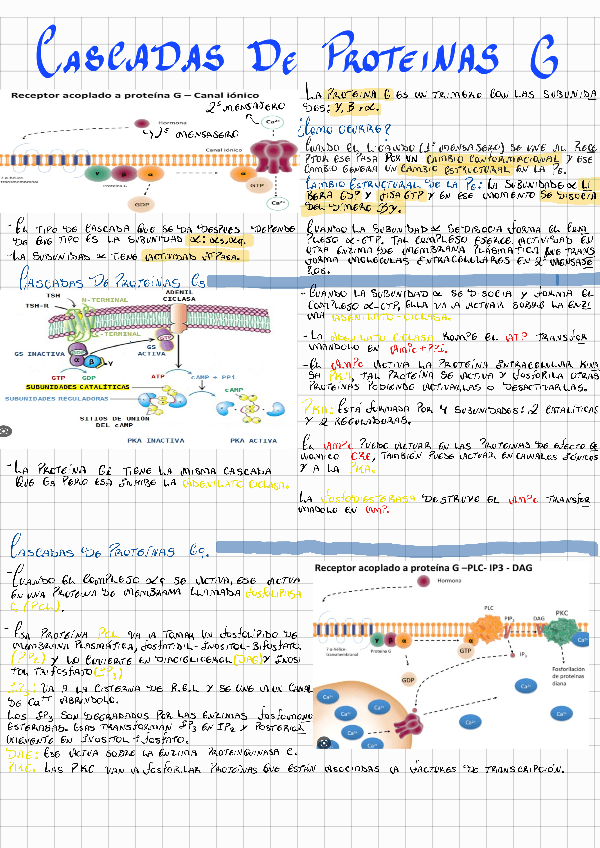 CASCADAS DE PROTEINAS G
Receptor acoplado a proteína G – Canal iónico
2º MENSAJERO
Hormona
1º MENSAJERO
Ca²⁺
Canal iónico
7 α-hélice
transmembranal
γ β α α
Proteína G
GTP
GDP
Ca²⁺
- EL TIPO DE CASCADA QUE SE DA DESPUES DEPENDE
DE QUE TIPO ES LA SUBUNIDAD α: αs, αq.
- LA SUBUNIDAD α TIENE ACTIVIDAD GTPASA.
LA PROTEINA G ES UN TRIMERO CON LAS SUBUNIDA
DES: γ, β y α.
¿COMO OCURRE?
CUANDO EL LIGANDO (1º MENSAJERO) SE UNE AL RECE
PTOR ESE PASA POR UN CAMBIO CONFORMACIONAL Y ESE
CAMBIO GENERA UN CAMBIO ESTRUCTURAL EN LA PG.
CAMBIO ESTRUCTURAL DE LA PG: LA SUBUNIDAD α LI
BERA GDP Y FIJA GTP Y EN ESE MOMENTO SE DISOCIA
DEL DÍMERO βγ.
CUANDO LA SUBUNIDAD α SE DISOCIA FORMA EL COM
PLEJO α-GTP. TAL COMPLEJO EJERCE ACTIVIDAD EN
OTRA ENZIMA (DE MEMBRANA PLASMATICA) QUE TRANS
FORMA MOLECULAS INTRACELULARES EN 2º MENSAJE
ROS.
CASCADAS DE PROTEINAS Gs
TSH
TSH-R
N-TERMINAL
ADENIL
CICLASA
C-TERMINAL
GS INACTIVA
GS
ACTIVA
GTP GDP
ATP
cAMP + PPi
SUBUNIDADES CATALÍTICAS
SUBUNIDADES REGULADORAS
cAMP
SITIOS DE UNION
DEL cAMP
PKA INACTIVA
PKA ACTIVA
- CUANDO LA SUBUNIDAD α SE DISOCIA Y FORMA EL
COMPLEJO α-GTP, ELLA VA A ACTUAR SOBRE LA ENZI
MA ADENILATO-CICLASA.
- LA ADENILATO CICLASA ROMPE EL ATP TRANSFOR
MANDOLO EN AMPc + PPi.
- EL AMPc ACTIVA LA PROTEÍNA INTRACELULAR KINA
SA PKA, TAL PROTEÍNA SE ACTIVA Y FOSFORILA OTRAS
PROTEÍNAS PUDIENDO ACTIVARLAS O DESACTIVARLAS.
PKA: ESTÁ FORMADA POR 4 SUBUNIDADES: 2 CATALÍTICAS
Y 2 REGULADORAS.
EL AMPc PUEDE ACTUAR EN LAS PROTEINAS DE EFECTO GE
NOMICO CRE, TAMBIÉN PUEDE ACTUAR EN CANALES IÓNICOS
Y A LA PKA.
LA FOSFODIESTERASA DESTRUYE EL AMPc TRANSFOR
MANDOLO EN AMP.
- LA PROTEÍNA Gi TIENE LA MISMA CASCADA
QUE Gs PERO ESA INHIBE LA ADENILATO CICLASA.
CASCADAS DE PROTEÍNAS Gq.
- CUANDO EL COMPLEJO αq SE ACTIVA, ESE ACTUA
EN UNA PROTEINA DE MEMBRANA LLAMADA FOSFOLIPASA
C (PCL).
- ESA PROTEÍNA PCL VA A TOMAR UN FOSFOLÍPIDO DE
MEMBRANA PLASMÁTICA, FOSFATIDIL-INOSITOL-BIFOSFATO
(PIP2) Y LO CONVIERTE EN DIACILGLICEROL (DAG) Y INOSI
TOL TRIFOSFATO (IP3)
IP3: VA A LA CISTERNA DE R.E.L Y SE UNE A UN CANAL
DE Ca⁺⁺ ABRIENDOLO.
LOS IP3 SON DEGRADADOS POR LAS ENZIMAS FOSFOMONO
ESTERASAS. ESAS TRANSFORMAN IP3 EN IP2 Y POSTERIOR
MENTE EN INOSITOL + FOSFATO.
DAG: ESE ACTUA SOBRE LA ENZIMA PROTEINQUINASA C.
PKC: LAS PKC VAN A FOSFORILAR PROTEÍNAS QUE ESTÁN ASOCIADAS A FACTORES DE TRANSCRIPCIÓN.
Receptor acoplado a proteína G –PLC- IP3 - DAG
Hormona
PLC
PIP₂
DAG
PKC
γ β α α
7 α-hélice-
transmembranal
Proteína G
GTP
IP₃
Ca²⁺
GDP
Fosforilación
de proteínas
diana
Ca²⁺
Ca²⁺
Ca²⁺
Ca²⁺
Ca²⁺
Ca²⁺
Ca²⁺